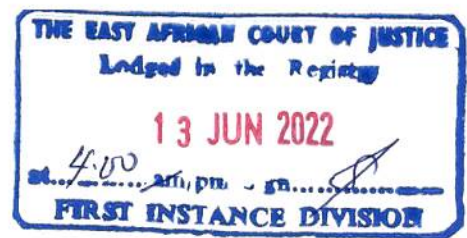 THE EAST AFRICAN COURT OF JUSTICE
Lodged in the Registry
13 JUN 2022
at 4.00 am, pm
FIRST INSTANCE DIVISION